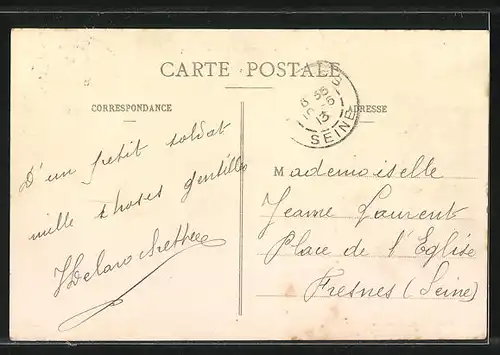 CARTE POSTALE
CORRESPONDANCE
ADRESSE
SEINE
D'un petit soldat
mille choses gentilles
Mademoiselle
Jeanne Laurent
Place de l'Eglise
Fresnes (Seine)